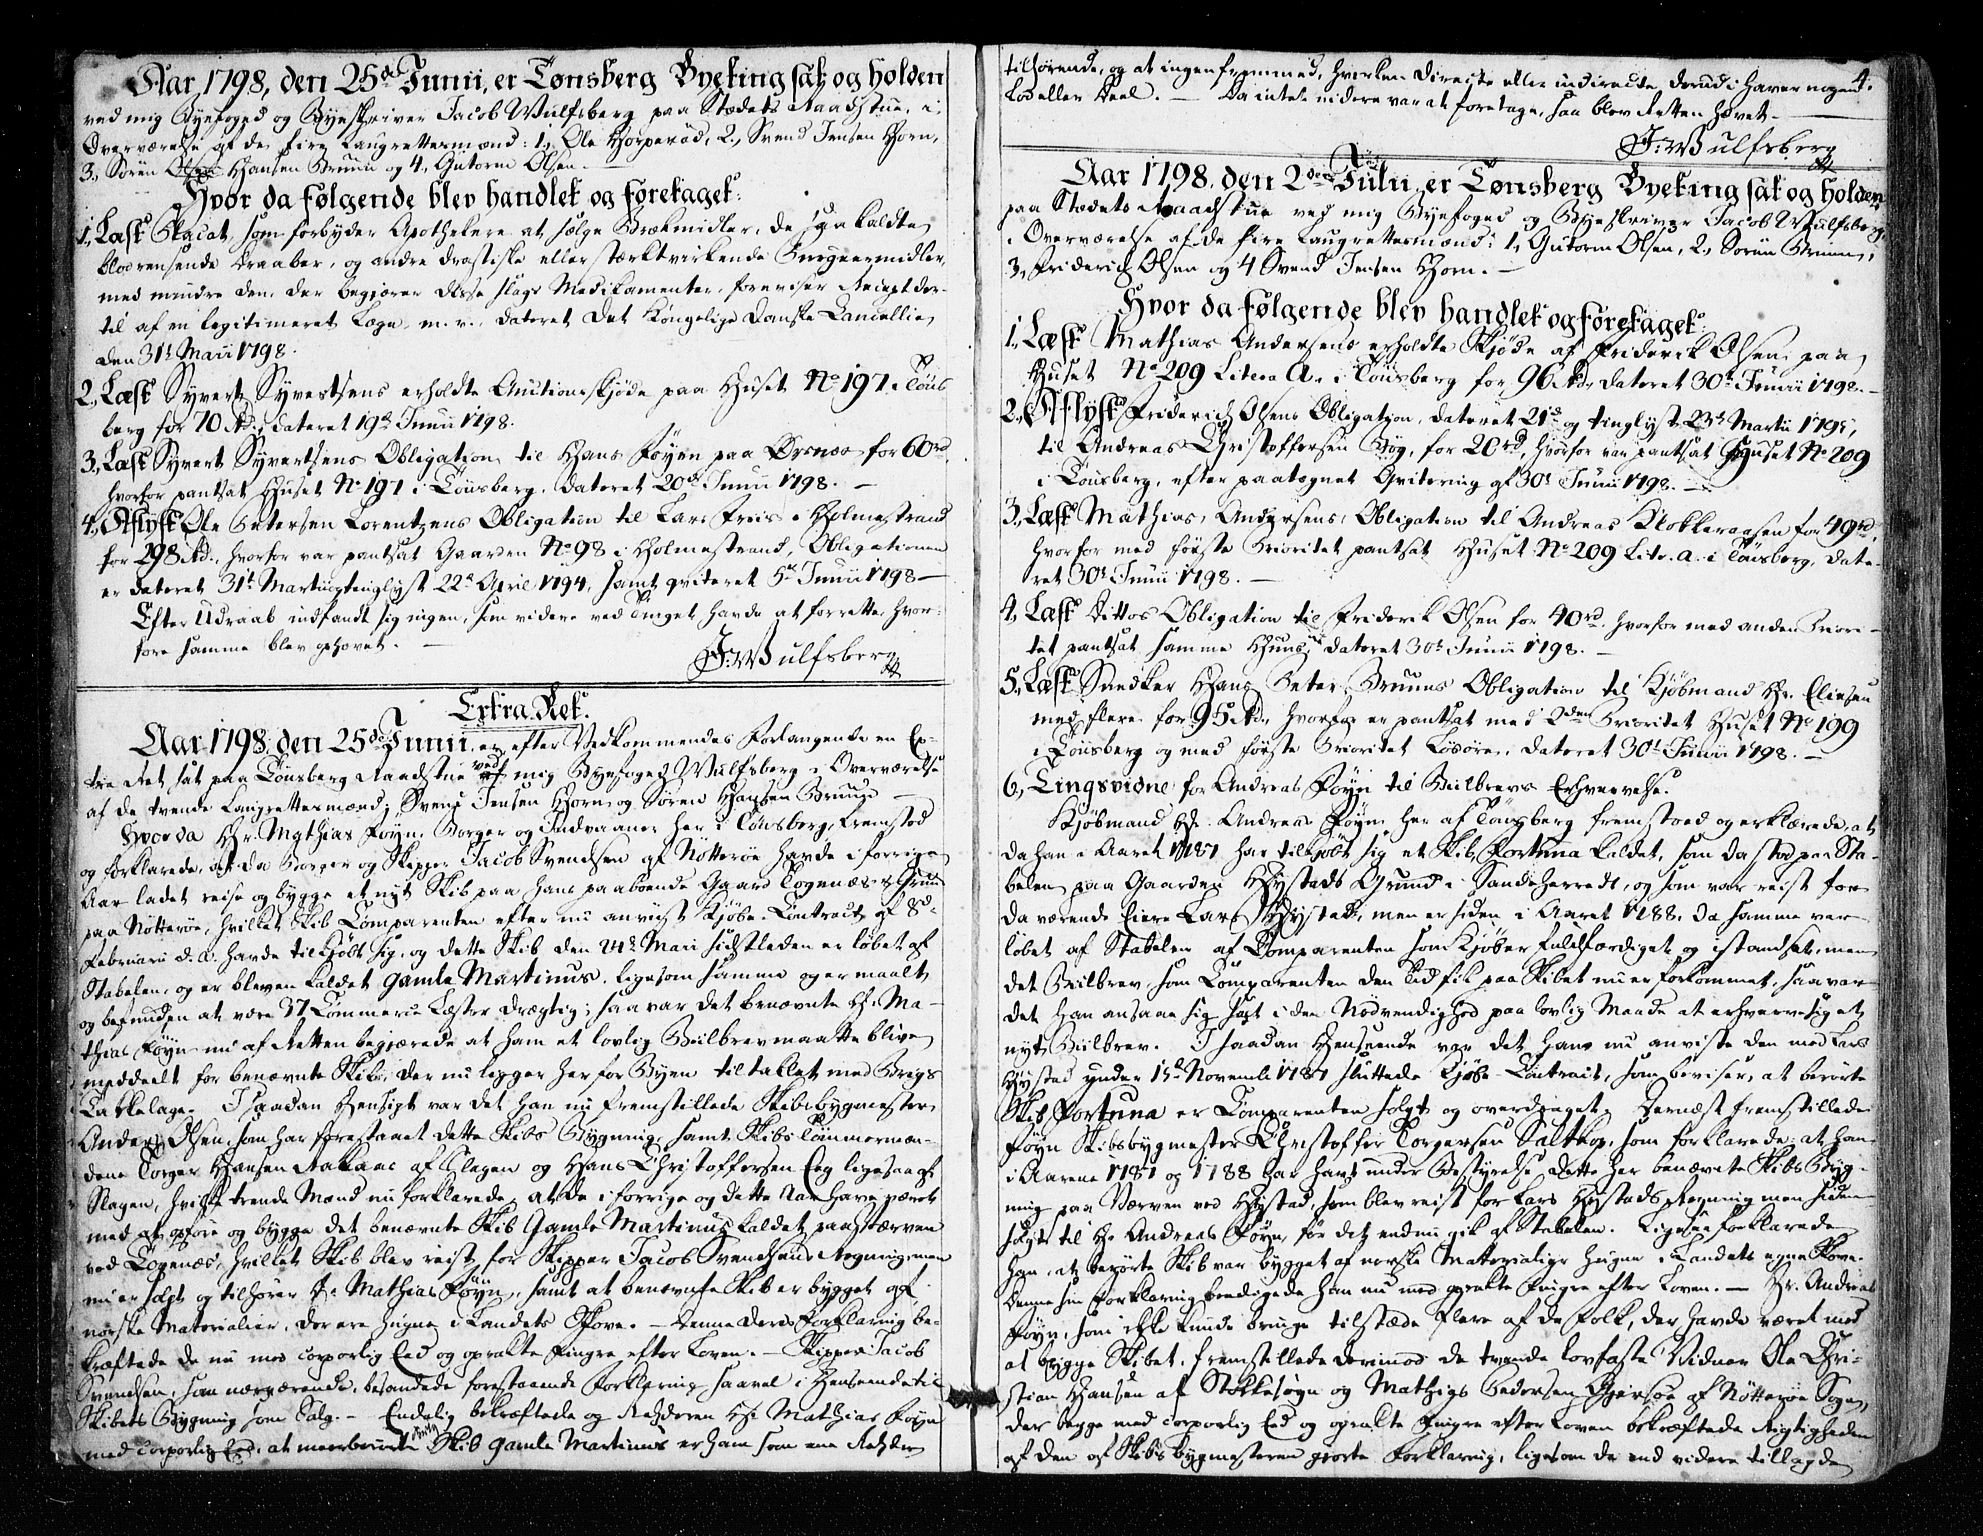 Aar 1798, den 25de Junii, er Tønsberg Byeting sat og holden
ved mig Byefoged og Byeskriver Jacob Wulfsberg paa Stædets Raadstue, i
Overværelse af de fire Laugrettesmænd: 1., Ole 2., Svend Jensen Horn,
3., Søren Hansen Bruun og 4., Gutorm Olsen.
Hvor da følgende blev handlet og foretaget:
1., Læst Placat, som forbyder Apothekere at sælge Brækmidler, de saa kaldte
blodrensende Draaber, og andre drastiske eller stærktvirkende Purgeermidler,
med mindre den, der begjærer disse slags Medikamenter, foreviser Recept der-
til af en legitimeret Læge, m. v., dateret Det Kongelige Danske Cancellie
den 31t Maii 1798.
2., Læst Syvert Syvertsens erholdte Auctionsskjøde paa Huset No 197 i Töns
berg for 70 rd., dateret 19de Junii 1798.
3., Læst Syvert Syvertsens Obligation til Hans Föyen paa Ørsnes for 60 rd,
hvorfor pantsat Huset No 197 i Tönsberg, dateret 20de Junii 1798. —
4., Aflyst Ole Petersen Lorentzens Obligation til Lars Friis i Holmestrand
for 298 rd., hvorfor var pantsat Gaarden No 98 i Holmestrand, Obligationen
er dateret 31t Martii og tinglyst 22d April 1794, samt qviteret 5te Junii 1798 —
Efter Udraab indfandt sig ingen, som videre ved Tinget havde at forrette, hvor-
fore samme blev ophævet. —
J: Wulfsberg
Extra Ret.
Aar 1798, den 25de Junii, er efter Vedkommendes Forlangende en Ex-
tra Ret sat paa Tönsberg Raadstue ved mig Byefoged Wulfsberg i Overværelse
af de tvende Laugrettesmænd; Svend Jensen Horn og Sören Hansen Bruun —
Hvor da Hr. Mathias Föyn, Borger og Indvaaner her i Tönsberg, fremstod
og forklarede, at da Borger og Skipper Jacob Svendsen af Nötteröe havde i forrige
Aar ladet reise og bygge et nyt Skib paa hans paaboende Gaard Togenæs's Grund
paa Nötteröe, hvilket Skib Comparenten efter nu anviist Kjöbe-Contract af 8de
Februarii d. A. havde tilkjöbt sig, og dette Skib den 14de Maii sidstleden er löbet af
Stabelen, og er bleven kaldet Gamle Martinus, ligesom samme og er maalt
og befunden at være 37 Commerce Læster drægtig; saa var det benævnte Hr. Ma-
thias Föyn nu af Retten begjærede at ham et lovlig Biilbrev maatte blive
meddeelt for benævnte Skib, der nu ligger her for Byen tiltaklet med Brigs
Takkelage. I saadan Hensigt var det han nu fremstillede Skibsbygmester
Anders Olsen, som har forestaaet dette Skibs Bygning, samt Skibs Tömmermæn-
dene Torger Hansen af Slagen og Hans Christoffersen Eeg ligesaa af
Slagen, hvilke trende Mænd nu forklarede, at de i forrige og dette Aar have været
med at opföre og bygge det benævnte Skib Gamle Martinus kaldet paa Værven
ved Togenæs, hvilket Skib blev reist for Skipper Jacob Svendsens Regning, men
nu er solgt og tilhörer Hr. Mathias Föyn, samt at benævnte Skib er bygget af
norske Materialier, der ere hugne i Landets Skove. — Denne deres Forklaring be-
kræftede de nu med corporlig Eed og oprakte Fingre efter Loven. — Skipper Jacob
Svendsen, som nærværende, besandede forestaaende Forklaring saavel i Henseende til
Skibets Bygning som Salg. — Endelig bekræftede og Rehderen Hr. Mathias Föyn
med corporlig Eed, at meerberörte Skib Gamle Martinus er ham som ene Rehder
4.
tilhørende, og at ingen fremmed, hverken directe eller indirecte, derudi haver nogen
Lod eller Deel. — Da intet videre var at foretage, saa blev Retten hævet. —
J: Wulfsberg
Aar 1798, den 2den Julii, er Tønsberg Byeting sat og holden
paa Stædets Raadstue ved mig Byefoged og Byeskriver Jacob Wulfsberg,
i Overværelse af de fire Laugrettesmænd: 1., Gutorm Olsen, 2., Sören Bruun,
3., Friderich Olsen og 4 Svend Jensen Horn. —
Hvor da følgende blev handlet og foretaget:
1., Læst Mathias Andersens erholdte Skjöde af Friderick Olsen paa
Huset No 209 Litera A. i Tönsberg for 96 rd., dateret 30te Junii 1798. —
2., Aflyst Friderich Olsens Obligation, dateret 21de og tinglyst 23de Martii 1795,
til Andreas Christoffersen Bøg, for 20 rd, hvorfor var pantsat Huset No 209
i Tönsberg, efter paategnet Qvitering af 30t Junii 1798. —
3., Læst Mathias Andersens Obligation til Andreas Klokkeraasen for 49 rd,
hvorfor med förste Prioritet pantsat Huset No 209 Litr. a. i Tönsberg, date-
ret 30t Junii 1798. —
4., Læst Dittos Obligation til Friderick Olsen for 40 rd. hvorfor med anden Priori-
tet pantsat samme Huus, dateret 30t Junii 1798. —
5., Læst Snedker Hans Peter Bruuns Obligation til Kjöbmand Hr. Eliesen
med flere for 95 rd., hvorfor er pantsat med 2den Prioritet Huset No 199
i Tönsberg og med förste Prioritet Lösöre, dateret 30t Junii 1798. —
6., Tingsvidne for Andreas Föyn til Biilbrevs Erhvervelse.
Kjöbmand Hr. Andreas Föyn her af Tönsberg fremstoed og erklærede, at
da han i Aaret 1787 har tilkjöbt sig et Skib, Fortuna kaldet, som da stod paa Sta-
belen paa Gaarden Hystads Grund i Sandeherredt, og som var reist for
da værende Eiere Lars Hystad, men er siden i Aaret 1788, da samme var
löbet af Stabelen af Comparenten som Kjöber fuldfærdiget og istandsat, men
det Biilbrev, som Comparenten den Tid fik paa Skibet nu er forkommet, saa var
det han ansaae sig sat i den Nödvendighed paa lovlig Maade at erhverve sig et
nyt Biilbrev. I saadan Henseende var det han nu anviste den med Lars
Hystad under 15de Novembr 1787 sluttede Kjöbe-Contract, som beviser, at berörte
Skib Fortuna er Comparenten solgt og overdraget. Dernæst fremstillede
Föyn Skibsbygmester Christoffer Torgersen Saltkop, som forklarede, at han
i Aarene 1787 og 1788 har havt under Bestyrelse dette her benævnte Skibs Byg-
ning paa Værven ved Hystad, som blev reist for Lars Hystads Regning men siden
solgt til Hr. Andreas Föyn, för det endnu gik af Stabelen. Ligesaa forklarede
han, at berörte Skib var bygget af norske Materialier hugne i Landets egne Skove.
Denne sin Forklaring beedigede han nu med oprakte Fingre efter Loven. — Hr. Andreas
Föyn, som ikke kunde bringe tilstæde flere af de Folk, der havde været med
at bygge Skibet, fremstillede derimod de tvende lovfaste Vidner Ole Chri-
stian Hansen af Stokkesogn og Mathias Pedersen af Nötteröe Sogn,
der begge med corporlig Eed og oprakte Fingre efter Loven bekræftede Rigtigheden
af den af Skibsbygmesteren gjorte Forklaring, ligesom de end videre tillagde